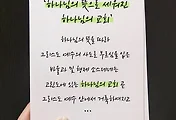 "하나님의 뜻으로 세워진
하나님의 교회"
하나님의 뜻을 따라
그리스도 예수의 사도로 부르심을 입은
바울과 및 형제 소스데네는
고린도에 있는 하나님의 교회 곧
그리스도 예수 안에서 거룩하여지고
...